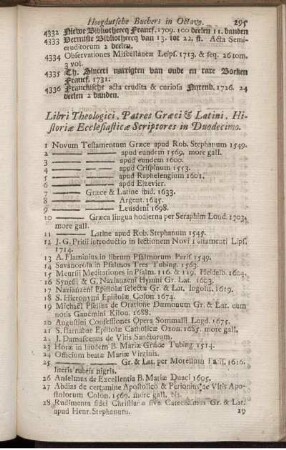 Hoogduitsche Boeken in Octavo. 295
4332 Nieuwe Bibliotheecq Francf. 1709. 100 deelen 11. banden
4333 Vermiste Bibliotheecq van 13. tot 22 ft. Acta Semi-
eruditorum 2 deelen.
4334 Observationes Miscellaneæ Leips. 1713. & seq. 26 tom.
3 vol.
4335 Th. Sinceri nachrigten van oude en rare Boeken
Francf. 1731.
4336 Francksche acta erudita & curiosa Nuremb. 1726. 24
deelen 2 banden.
Libri Theologici, Patres Græci & Latini, Hi-
storiæ Ecclesiasticæ Scriptores in Duodecimo.
1 Novum Testamentum Græce apud Rob. Stephanum 1549.
2 apud eundem 1569. mor. gall.
3 apud eundem 1600.
4 apud Crispinum 1553.
5 apud Raphelengium 1601.
6 apud Elzevier.
7 Græce & Latine ibid. 1633.
8 Argent. 1645.
9 Leusdeni 1698.
10 Græca lingua hodierna per Seraphim Lond. 1703.
mor. gall.
11 Latine apud Rob. Stephanum 1545.
12 J. G. Pritii introductio in lectionem Novi Testamenti Lips.
1714.
13 A. Flaminius in librum Psalmorum Paris 1549.
14 Savanorola in Psalmos Tres Tubing. 1563.
15 Meursii Meditationes in Psalm. 116 & 119. Heidelb. 1604.
16 Synesii & G. Nazianzeni Hymni Gr. & Lat.
17 Nazianzeni Epistolæ Selectæ Gr. & Lat. Ingolst.
18 S. Hieronymi Epistolæ Colon. 1674.
19 Michael Psellus de Oratione Dæmonum Gr. & Lat. cum
nova Gaulmini Kilon. 1688.
20 Augustini Confessiones Opera Sommalii Lond.
21 S. Barnabæ Epistola Catholica Oxon. 1685. mor. gall.
22 J. Damascenus de Vitis Sanctorum.
23 Horæ in laudem B. Mariæ Græce Tubing. 1514.
24 Officium beatæ Mariæ Virginis.
25 Gr. & Lat. per Moretum 1616.
lineis rubeis nigris.
26 Anselmus de Excellentia B. Mariæ Duaci 1605.
27 Abdias de certamine Apostolico & Perionius de Vitis Apo-
stolorum Colon. 1569. mor. gall.
28 Rudimenta fidei Christianæ sive Catechismus Gr. & Lat.
apud Henr. Stephanum.
29